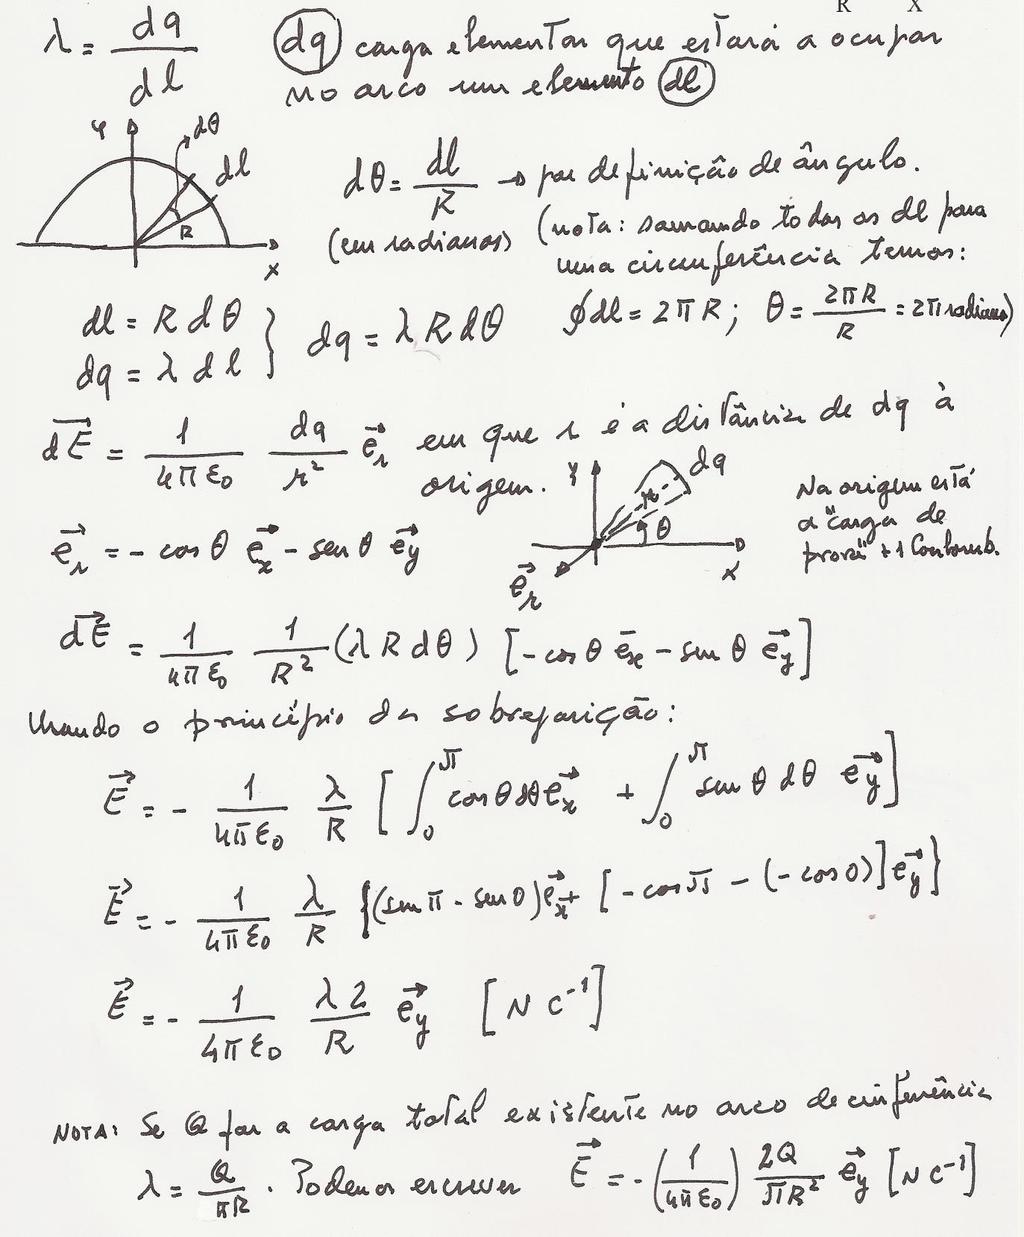 R X
λ = dq/dl (dq) carga elementar que estará a ocupar
no arco um elemento (dl)
y dθ dl R x
dθ = dl/R → por definição de ângulo.
(em radianos) (nota: somando todos os dl para
uma circunferência temos:
dl = R dθ } dq = λ R dθ ∮dl = 2πR; θ = 2πR/R = 2π radianos)
dq = λ dl
dE⃗ = 1/4πε₀ dq/r² e⃗r em que r é a distância de dq à
origem. y dq r θ x e⃗r
Na origem está
a "carga de
prova" +1 Coulomb.
e⃗r = - cos θ e⃗x - sen θ e⃗y
dE⃗ = 1/4πε₀ 1/R² (λ R dθ) [- cos θ e⃗x - sen θ e⃗y]
Usando o princípio da sobreposição:
E⃗ = - 1/4πε₀ λ/R [∫₀^π cos θ dθ e⃗x + ∫₀^π sen θ dθ e⃗y]
E⃗ = - 1/4πε₀ λ/R {(sen π - sen 0) e⃗x + [- cos π - (- cos 0)] e⃗y}
E⃗ = - 1/4πε₀ λ2/R e⃗y [N C⁻¹]
NOTA: Se Q for a carga total existente no arco de cinferência
λ = Q/πR. Podemos escrever E⃗ = - (1/4πε₀) 2Q/πR² e⃗y [N C⁻¹]